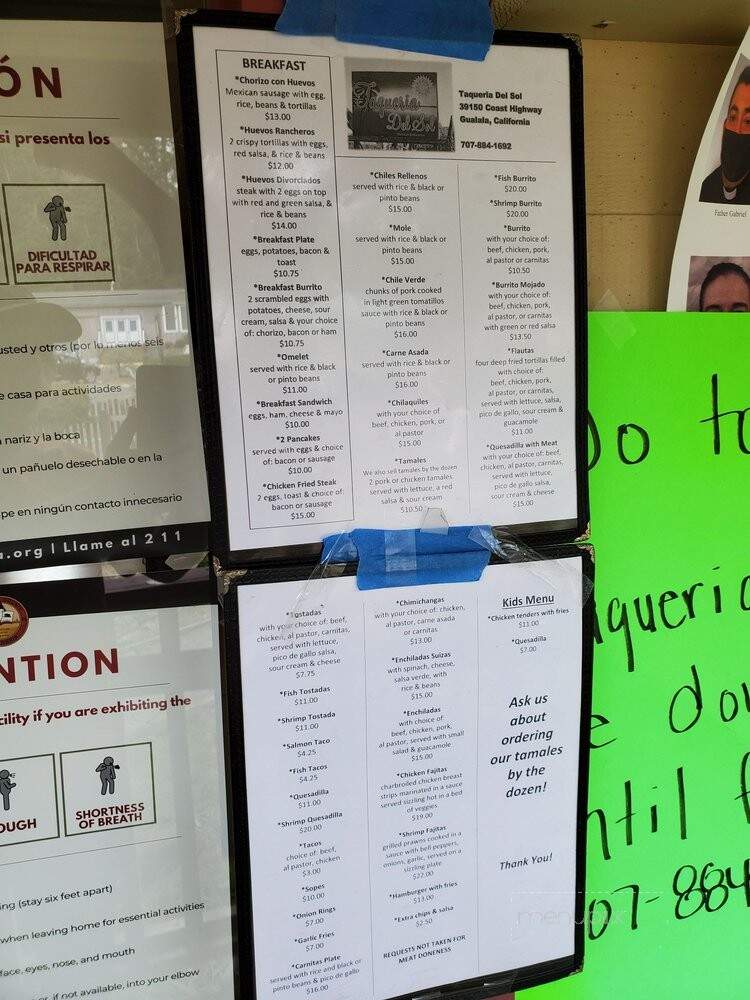 ÓN
si presenta los
DIFICULTAD
PARA RESPIRAR
usted y otros (por lo menos seis
e casa para actividades
nariz y la boca
un pañuelo desechable o en la
pe en ningún contacto innecesario
a.org | Llame al 211
NTION
cility if you are exhibiting the
OUGH
SHORTNESS
OF BREATH
ing (stay six feet apart)
when leaving home for essential activities
face, eyes, nose, and mouth
or, if not available, into your elbow
BREAKFAST
*Chorizo con Huevos
Mexican sausage with egg,
rice, beans & tortillas
$13.00
*Huevos Rancheros
2 crispy tortillas with eggs,
red salsa, & rice & beans
$12.00
*Huevos Divorciados
steak with 2 eggs on top
with red and green salsa, &
rice & beans
$14.00
*Breakfast Plate
eggs, potatoes, bacon &
toast
$10.75
*Breakfast Burrito
2 scrambled eggs with
potatoes, cheese, sour
cream, salsa & your choice
of: chorizo, bacon or ham
$10.75
*Omelet
served with rice & black
or pinto beans
$11.00
*Breakfast Sandwich
eggs, ham, cheese & mayo
$10.00
*2 Pancakes
served with eggs & choice
of: bacon or sausage
$10.00
*Chicken Fried Steak
2 eggs, toast & choice of:
bacon or sausage
$15.00
Taqueria
Del Sol
Taqueria Del Sol
39150 Coast Highway
Gualala, California
707-884-1692
*Chiles Rellenos
served with rice & black or
pinto beans
$15.00
*Mole
served with rice & black or
pinto beans
$15.00
*Chile Verde
chunks of pork cooked
in light green tomatillos
sauce with rice & black or
pinto beans
$16.00
*Carne Asada
served with rice & black or
pinto beans
$16.00
*Chilaquiles
with your choice of
beef, chicken, pork, or
al pastor
$15.00
*Tamales
We also sell tamales by the dozen
2 pork or chicken tamales
served with lettuce, a red
salsa & sour cream
$10.50
*Fish Burrito
$20.00
*Shrimp Burrito
$20.00
*Burrito
with your choice of:
beef, chicken, pork,
al pastor or carnitas
$10.50
*Burrito Mojado
with your choice of:
beef, chicken, pork,
al pastor, or carnitas
with green or red salsa
$13.50
*Flautas
four deep fried tortillas filled
with choice of:
beef, chicken, pork,
al pastor, or carnitas,
served with lettuce, salsa,
pico de gallo, sour cream &
guacamole
$11.00
*Quesadilla with Meat
with your choice of: beef,
chicken, al pastor, carnitas,
served with lettuce,
pico de gallo salsa,
sour cream & cheese
$15.00
*Tostadas
with your choice of: beef,
chicken, al pastor, carnitas,
served with lettuce,
pico de gallo salsa,
sour cream & cheese
$7.75
*Fish Tostadas
$11.00
*Shrimp Tostada
$11.00
*Salmon Taco
$4.25
*Fish Tacos
$4.25
*Quesadilla
$11.00
*Shrimp Quesadilla
$20.00
*Tacos
choice of: beef,
al pastor, chicken
$3.00
*Sopes
$10.00
*Onion Rings
$7.00
*Garlic Fries
$7.00
*Carnitas Plate
served with rice and black or
pinto beans & pico de gallo
$16.00
*Chimichangas
with your choice of: chicken,
al pastor, carne asada
or carnitas
$13.00
*Enchiladas Suizas
with spinach, cheese,
salsa verde, with
rice & beans
$15.00
*Enchiladas
with choice of:
beef, chicken, pork,
al pastor, served with small
salad & guacamole
$15.00
*Chicken Fajitas
charbroiled chicken breast
strips marinated in a sauce
served sizzling hot in a bed
of veggies
$19.00
*Shrimp Fajitas
grilled prawns cooked in a
sauce with bell peppers,
onions, garlic, served on a
sizzling plate
$22.00
*Hamburger with fries
$13.00
*Extra chips & salsa
$2.50
REQUESTS NOT TAKEN FOR
MEAT DONENESS
Kids Menu
*Chicken tenders with fries
$11.00
*Quesadilla
$7.00
Ask us
about
ordering
our tamales
by the
dozen!
Thank You!
menupix
Father Gabriel
Do to
aqueria
e do
ntil f
07-884